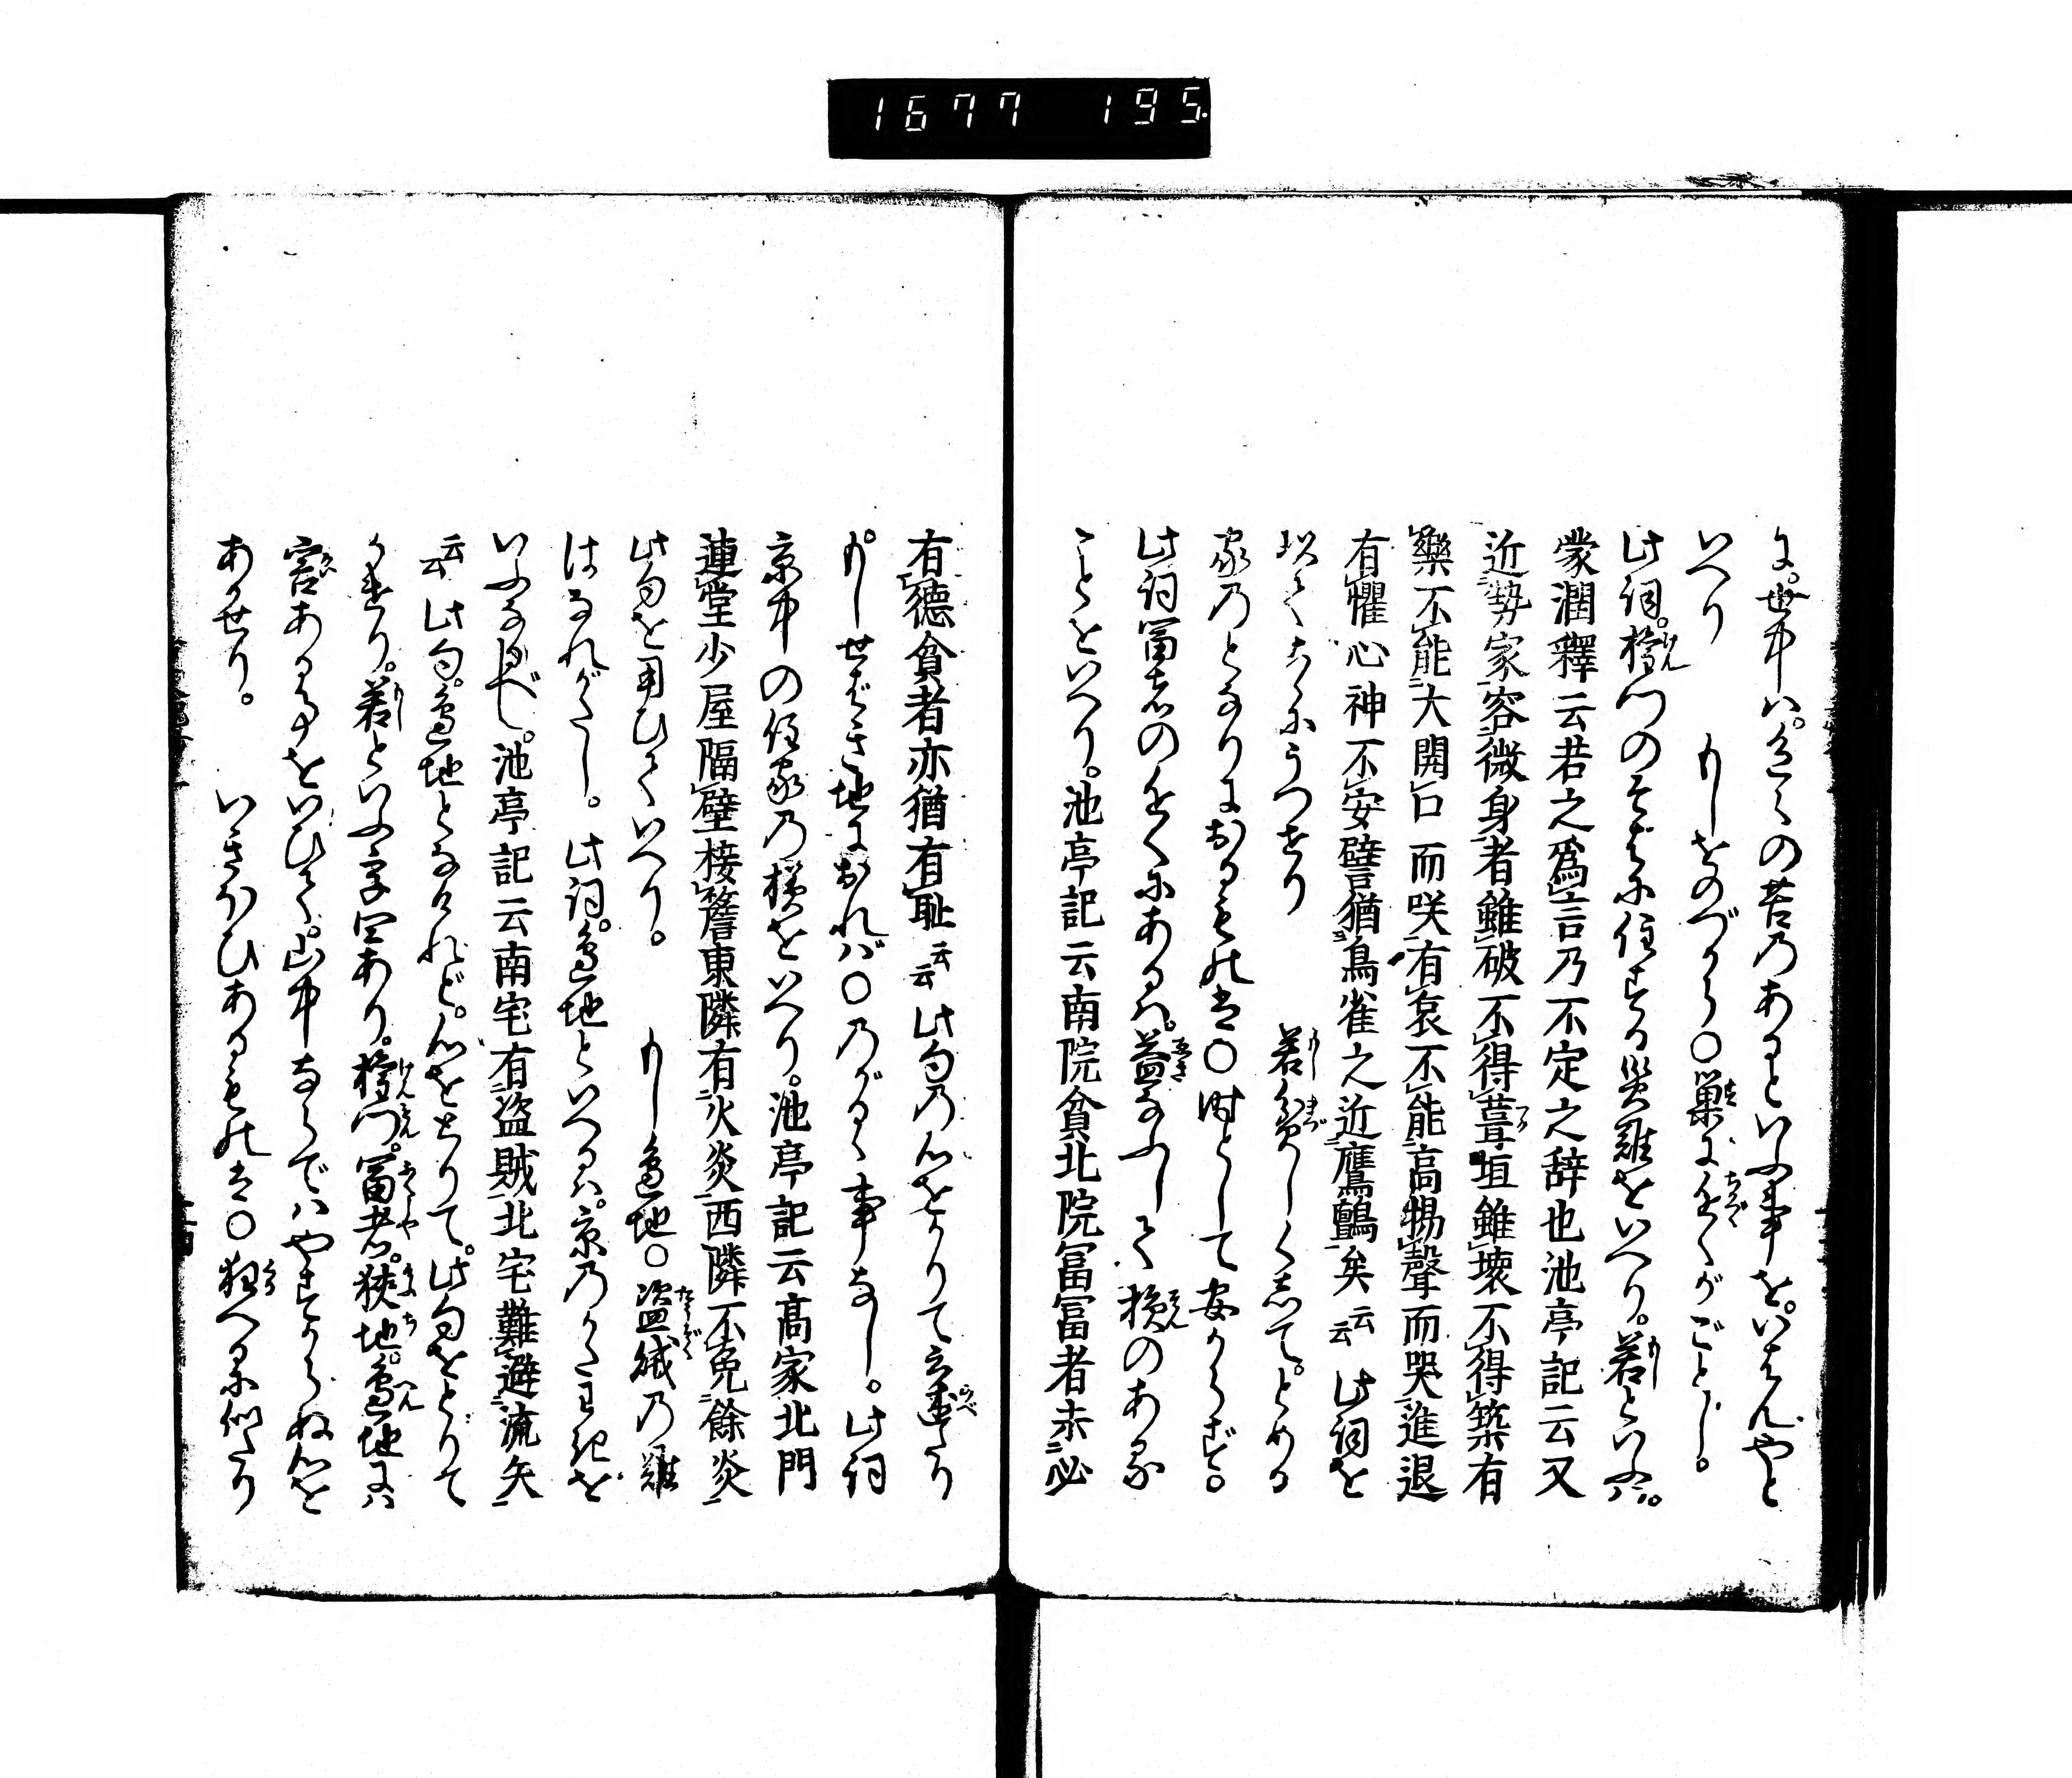 1677 195
に。世中ハ。色〻の苦乃あるといふ事を。いはんやと
いへり　もしをのづから〇巣にちかくがごとし。
此詞。権門のそばに住する災難をいへり。若といふハ。
蒙潤釋云若之爲言乃不定之辞也池亭記云又
近勢家容微身者雖破不得葺垣雖壊不得築有
樂不能大開口而咲有哀不能高揚聲而哭進退
有懼心神不安譬猶鳥雀之近鷹鸇矣云云此詞を
以てこゝにうつせり　若貧しくして。とめる
家乃となりにおるものは〇時として安からず。
此詞冨者のちかくにあるハ。益なふして損のある
ことをいへり。池亭記云南院貧北院冨冨者未必
有徳貧者亦猶有恥云云此句乃心をかりて立述たり
もしせばき地におれバ〇乃がるゝ事なし。此詞
京中の住家乃様をいへり。池亭記云高家北門
連堂少屋隔壁接簷東隣有火災西隣不免餘炎
此句を用ひていへり。　もし邉地〇盗賊乃難
はなれがたし。此詞。邉地といへるハ。京乃かたわきを
いふなるべし。池亭記云南宅有盗賊北宅難避流矢
云云此句。邉地となけれど。心をとりて。此句をとりて
かけり。若といふ字四あり。権門。冨者。狭地。邉地にハ
害ある事をいひて。山中ならでハやすからぬ心を
あかせり。　いきほひあるものは〇狂へるに似たり